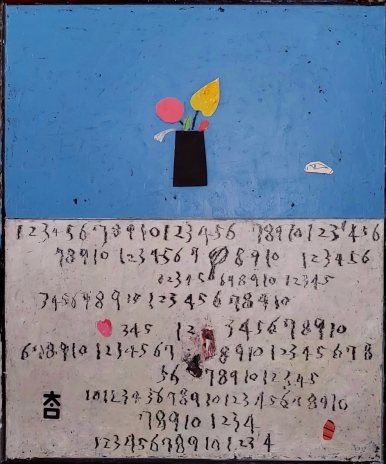 12345678910123456 78910123456
78910 1234567 8910 123456
12345678910 12345
345678910 12345678910
345 12 345678910
678910 1234567 8910 12345678
56 78910 12345
10123456789101234567 8910
78910 1234
참
12345678910 1234